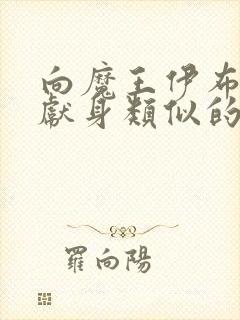 向魔王伊布
獻身類似的
羅向陽